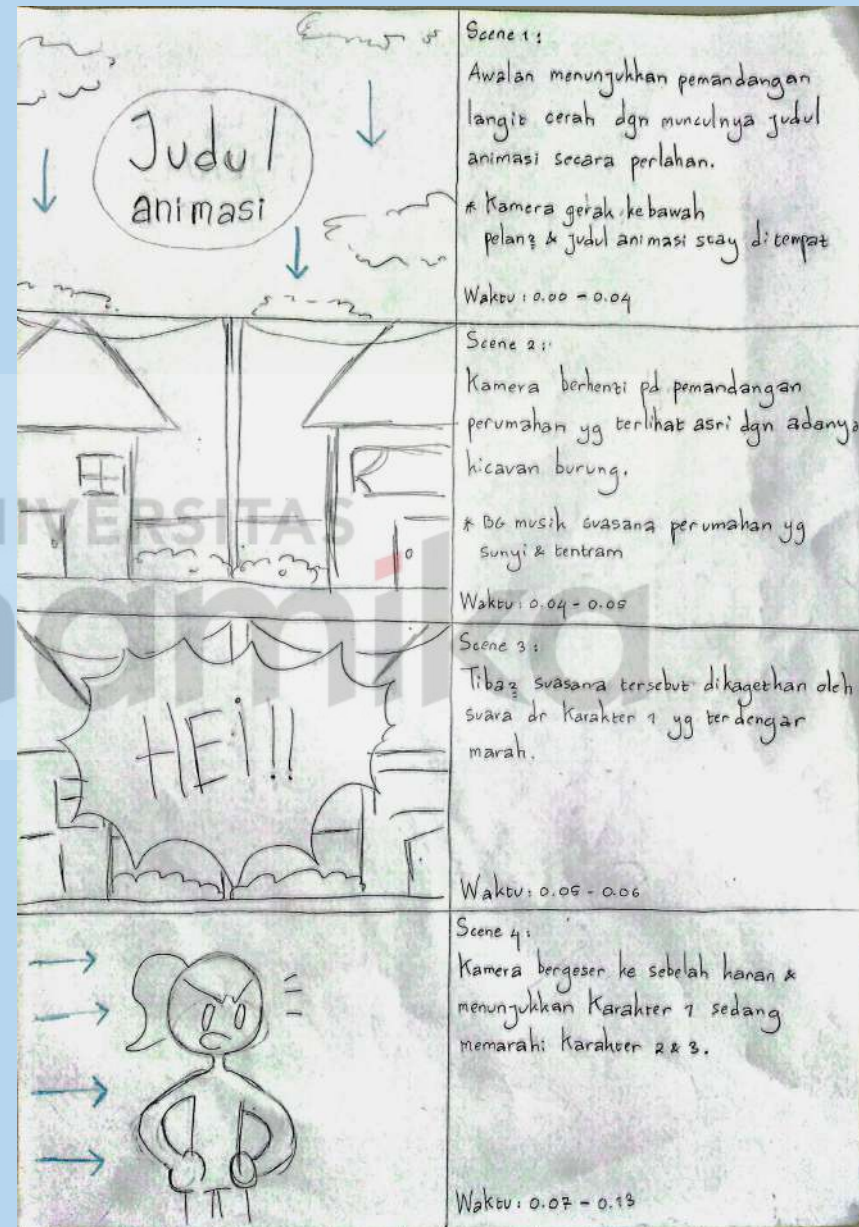 Judul
animasi
Scene 1:
Awalan menunjukkan pemandangan
langit cerah dgn munculnya judul
animasi secara perlahan.
* Kamera gerak kebawah
pelan2 & judul animasi stay ditempat
Waktu: 0.00 - 0.04
Scene 2:
Kamera berhenti pd pemandangan
perumahan yg terlihat asri dgn adanya
kicauan burung.
* BG musik suasana perumahan yg
sunyi & tentram
Waktu: 0.04 - 0.05
HEI!!!
Scene 3:
Tiba2 suasana tersebut dikagetkan oleh
suara dr Karakter 1 yg terdengar
marah.
Waktu: 0.05 - 0.06
Scene 4:
Kamera bergeser ke sebelah kanan &
menunjukkan Karakter 1 sedang
memarahi Karakter 2 & 3.
Waktu: 0.07 - 0.13
UNIVERSITAS
namika